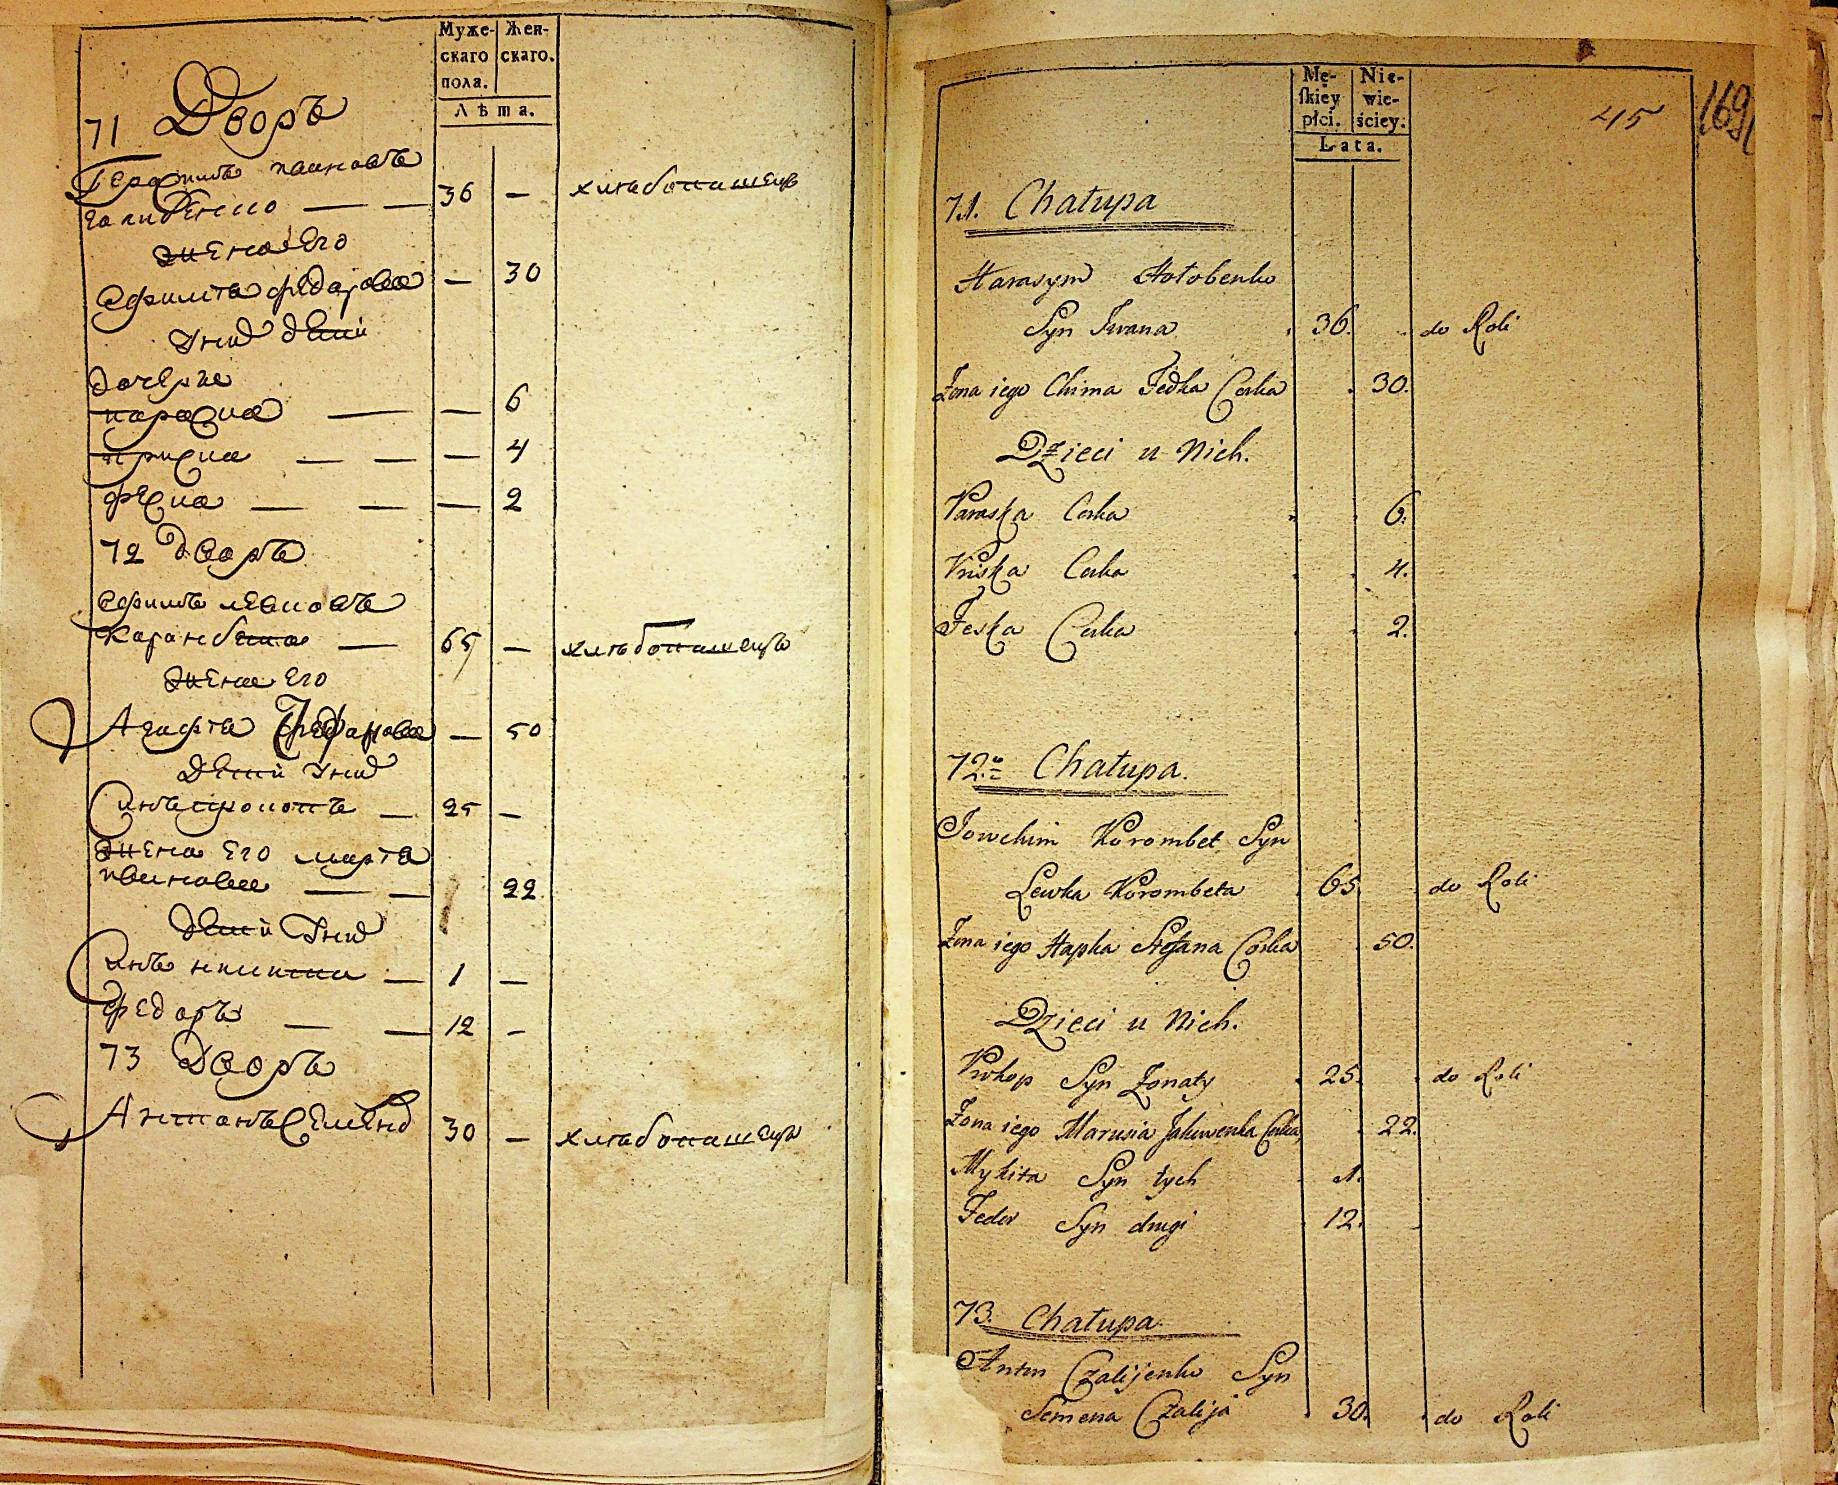 Муже- Жен-
скаго скаго.
пола.
Лѣта.
71 Дворъ
Герасимъ ивановъ
голубенко — — 36 — хлѣбопашецъ
жена Его
Ефимія федорова — 30
у нихъ дѣти
дочерѣ
параска — — 6
приска — — — 4
феска — — — 2
72 дворъ
Ефимъ левковъ
Карамбета — 65 — хлѣбопашецъ
жена Его
Агафія — 50
Дѣти у нихъ
Синъ прокопъ — 25 —
жена Его марта
ивановна — — 22
дѣти у нихъ
Синъ никита — 1 —
федоръ — — 12 —
73 Дворъ
Антонъ 30 — хлѣбопашецъ
Mę- Nie-
ſkiey wie-
płci. ściey.
Lata.
45 169
71. Chałupa
Harasym Hołobenko
Syn Iwana 36. do Roli
Żona iego Chima Fedka Corka 30.
Dzieci u Nich.
Paraska Corka 6.
Priska Corka 4.
Feska Corka 2.
72. Chałupa.
Jowchim Korombet Syn
Lewka Korombeta 65 do Roli
Żona iego Hapka Stefana Corka 50.
Dzieci u Nich.
Prokop Syn Żonaty 25. do Roli
Żona iego Marusia Jakiwenka Corka 22.
Mykita Syn tych 1.
Fedor Syn drugi 12.
73. Chałupa
Anton Czalijenko Syn
Semena Czalija 30. do Roli